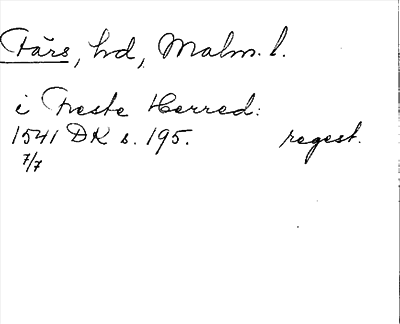 Färs, hd, Malm. l.
i Freste Herred:
1541 DK s. 195. regest.
7/7